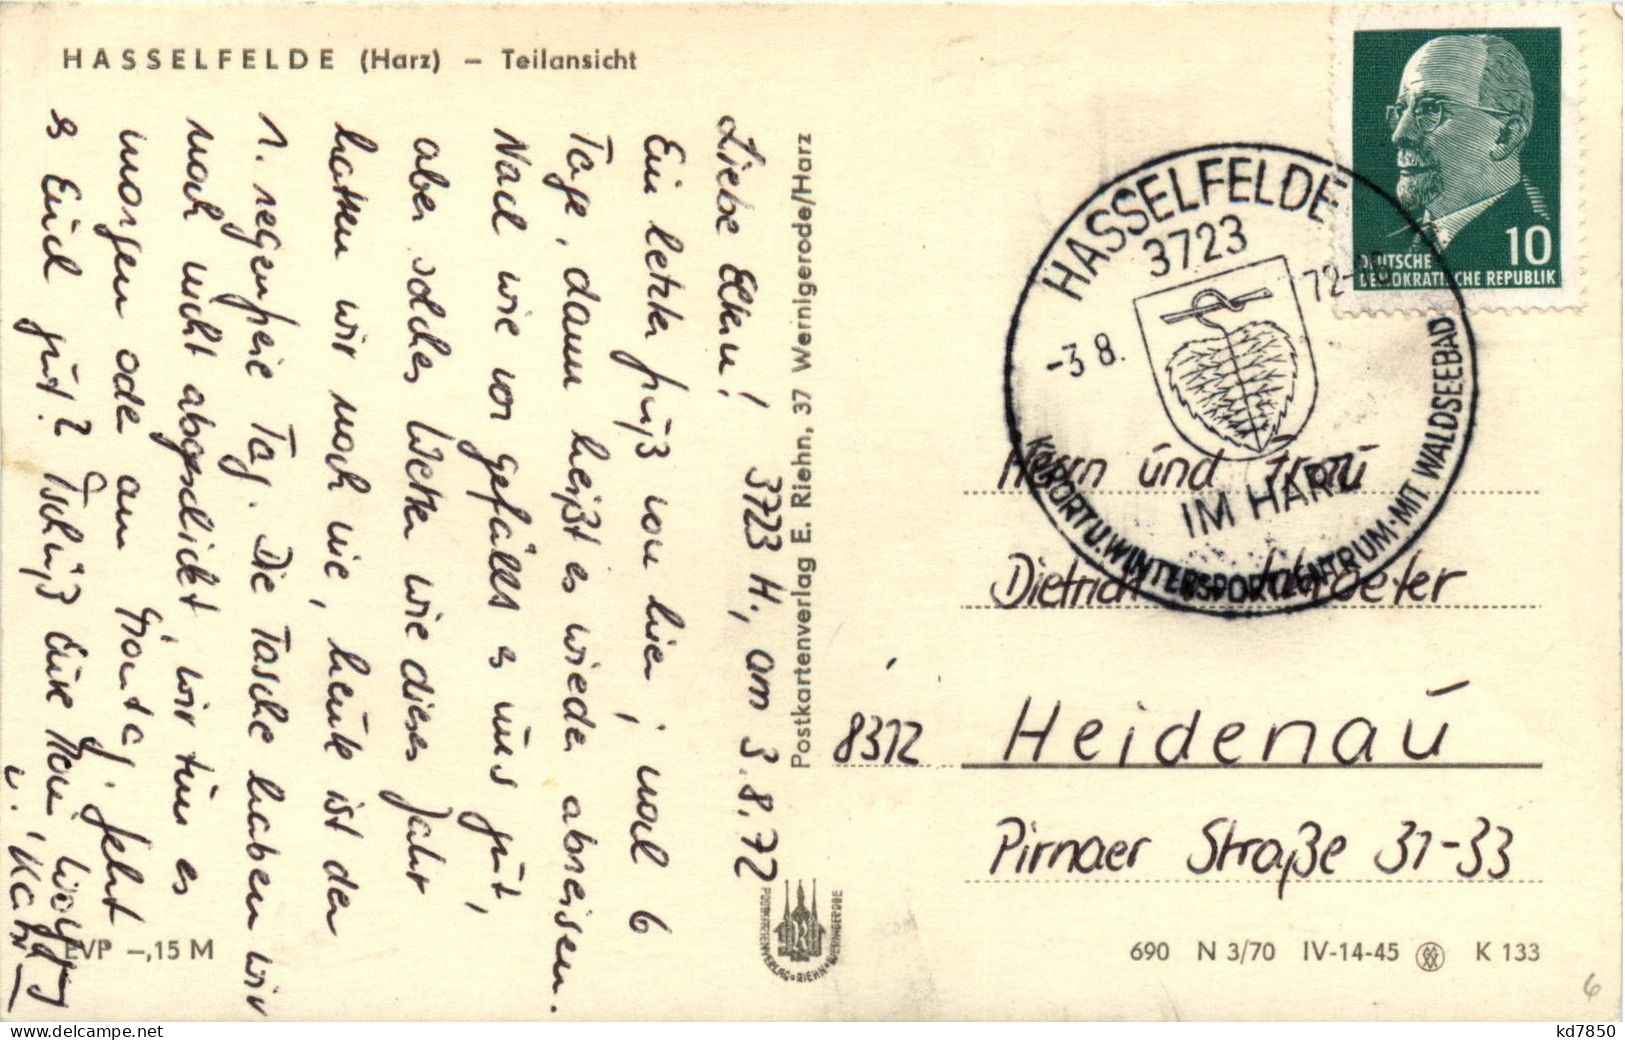 HASSELFELDE (Harz) – Teilansicht
3723 H., am 3.8.72
Liebe Eltern!
Ein letzter Gruß von hier; noch 6
Tage, dann heißt es wieder abreisen.
Nach wie vor gefällt es uns gut,
aber solches Wetter wie dieses Jahr
hatten wir noch nie, heute ist der
1. regenfreie Tag. Die Tasche haben wir
noch nicht abgeschickt, wir tun es
morgen oder am Montag. Geht
es Euch gut? Tschüß Eure
u.
EVP –,15 M
Postkartenverlag E. Riehn, 37 Wernigerode/Harz
POSTKARTENVERLAG • RIEHN • WERNIGERODE
10
DEUTSCHE
DEMOKRATISCHE REPUBLIK
HASSELFELDE
3723
-3.8. 72-
IM HARZ
KURORT U. WINTERSPORTZENTRUM · MIT WALDSEEBAD
Herrn und Frau
Dietrich
8312 Heidenau
Pirnaer Straße 31-33
690 N 3/70 IV-14-45 K 133
6
kd7850